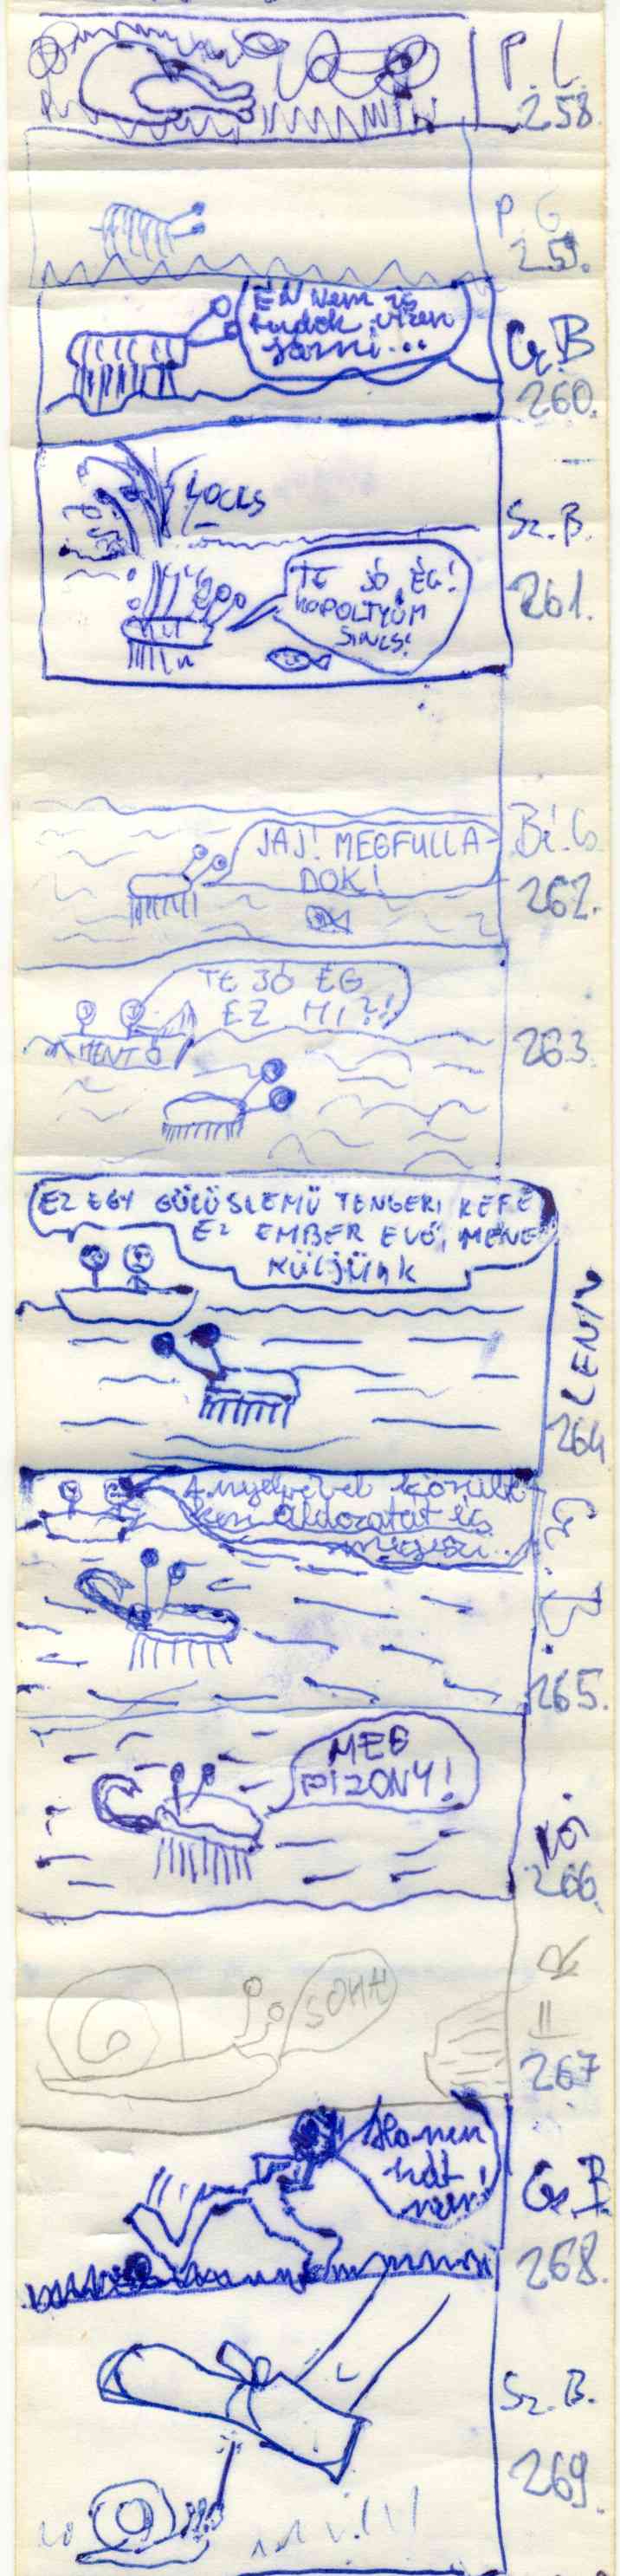 P. L.
258.
P. G.
259.
ÉN nem is
tudok vízen
járni...
Cz. B
260.
LOCCS
Sz. B.
TE JÓ ÉG!
KOPOLTYÚM
SINCS!
261.
JAJ! MEGFULLA-
DOK!
262.
TE JÓ ÉG
EZ MI?!!
MENTŐ
263.
EZ EGY GÜLÜSZEMŰ TENGERI KEFE
EZ EMBER EVŐ, MENE
KÜLJÜNK
LENIN
264
A nyelvével
áldozatát és
megeszi...
265.
MEG
BIZONY!
266.
SOHH
267
Ha nem
hát
nem!
268.
Sz. B.
269.